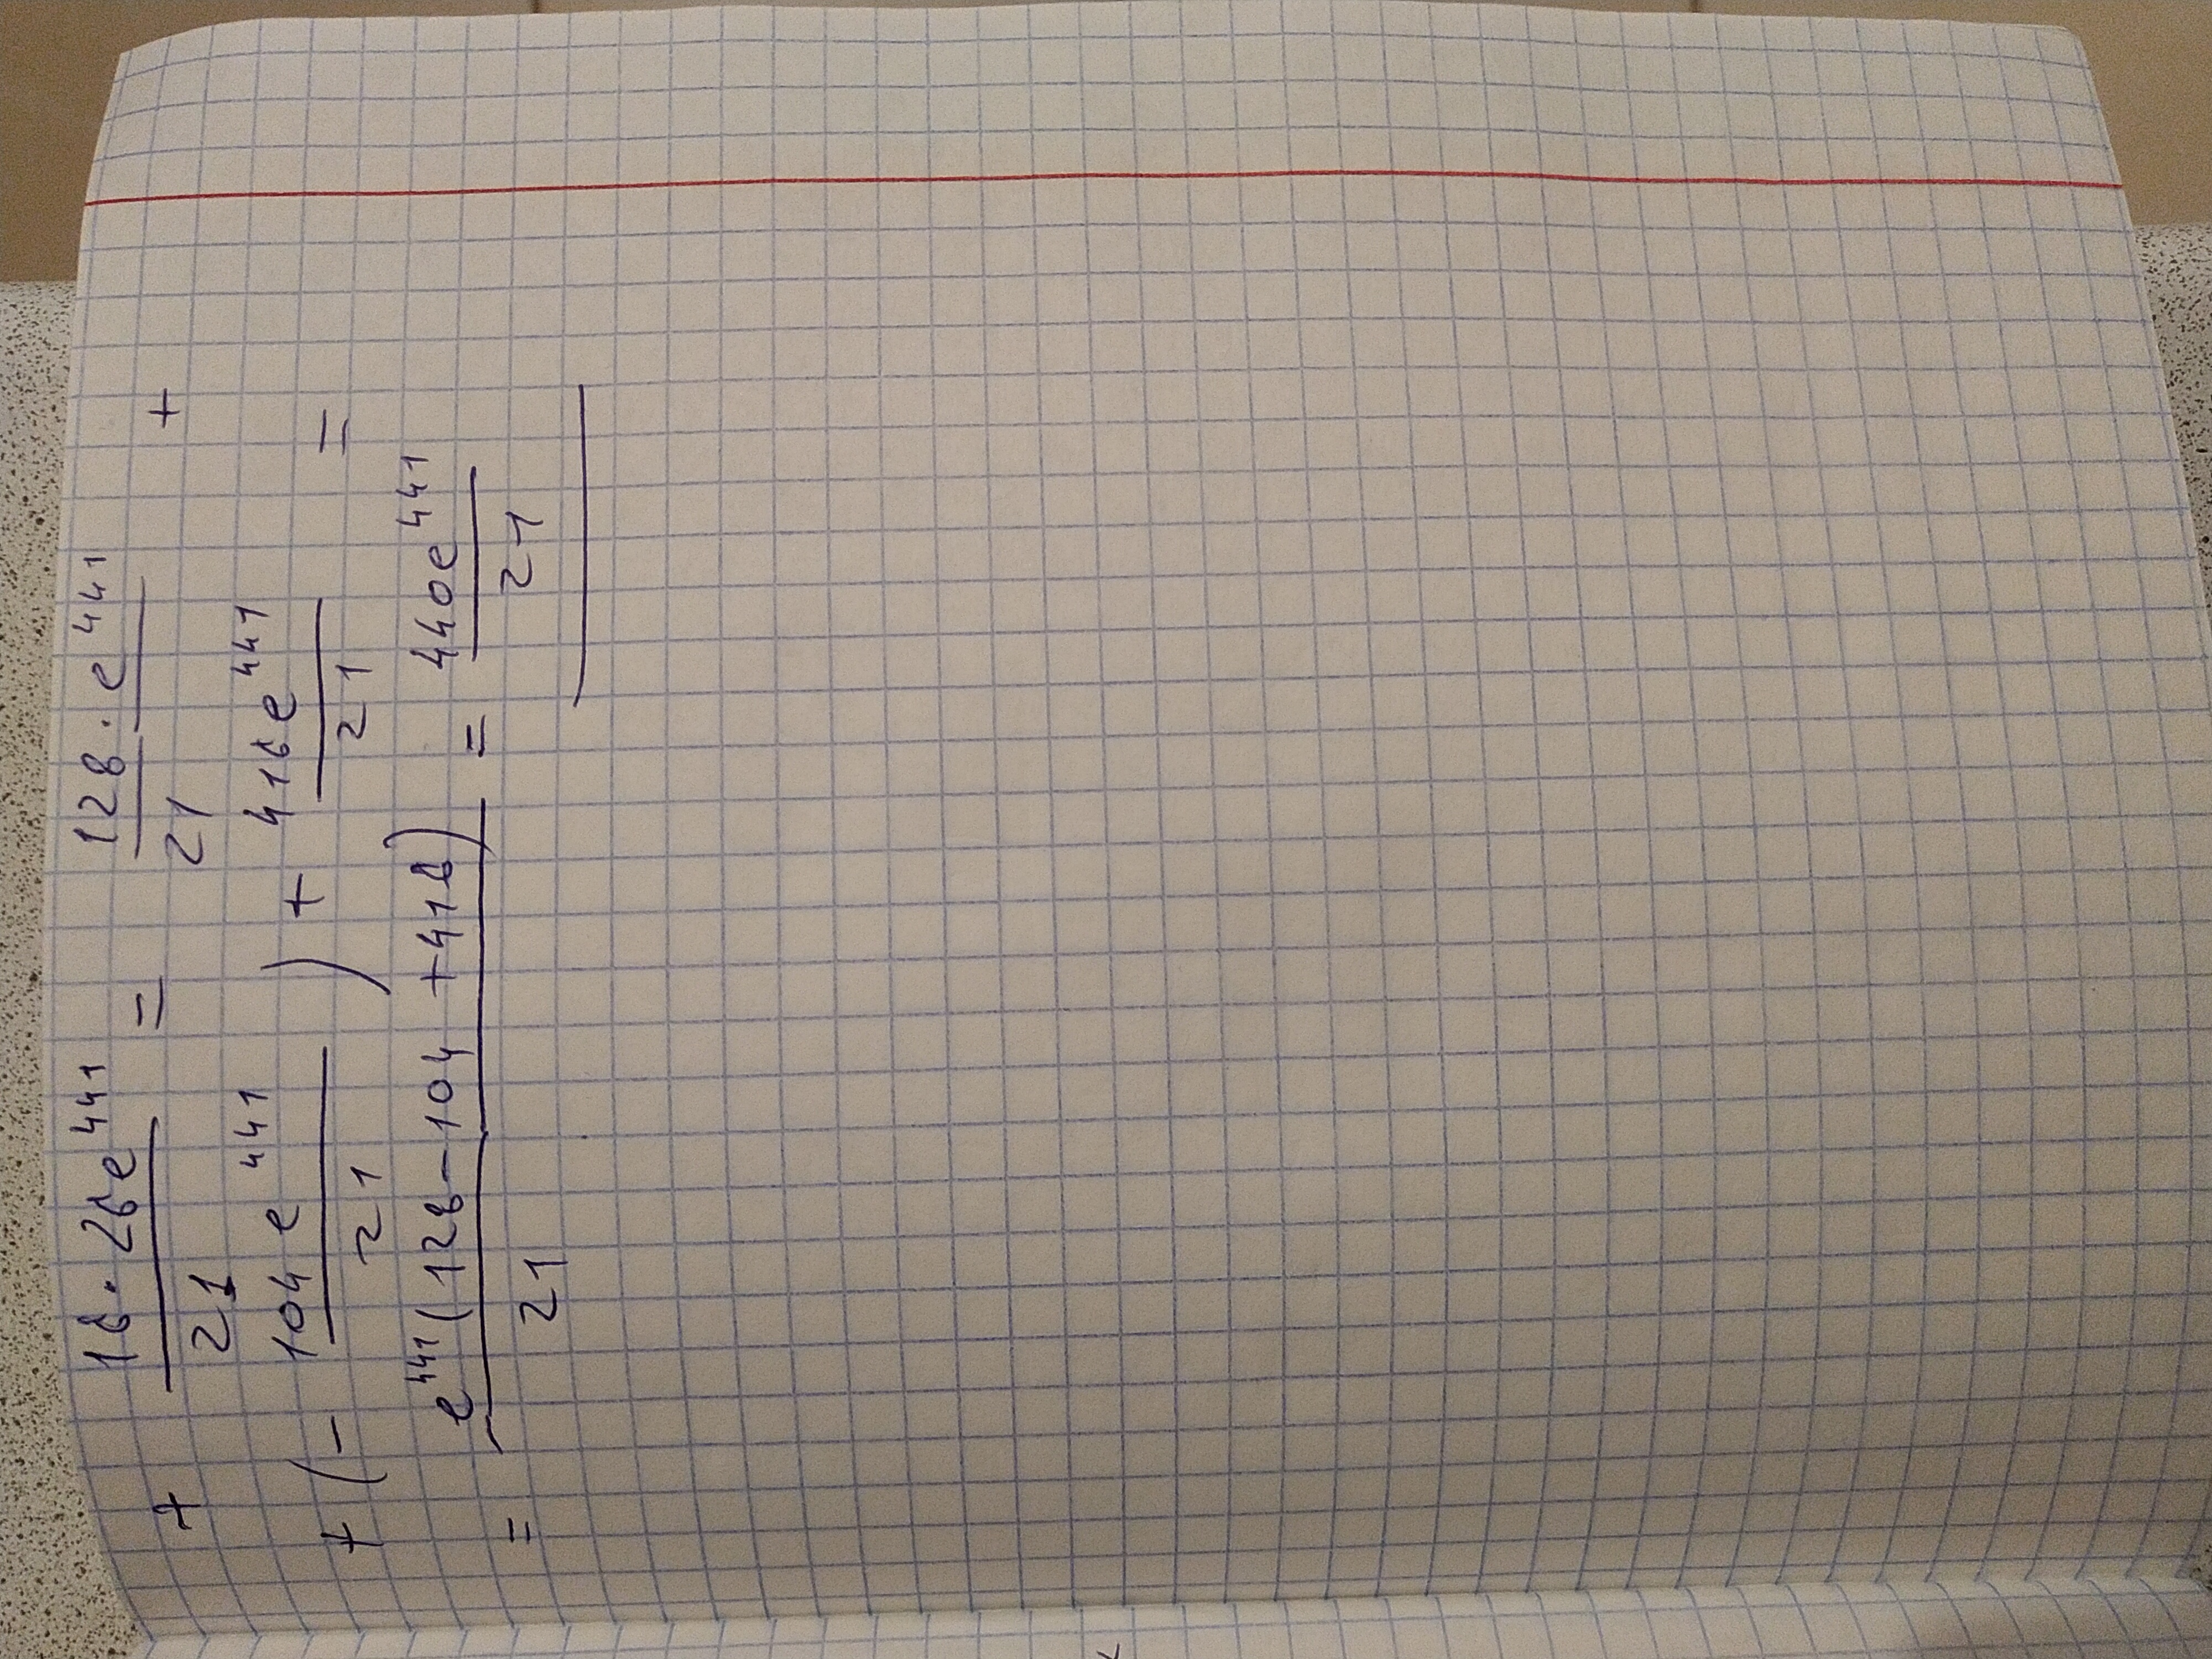 + 16·26e^441 / 21 = 128·e^441 / 21 +
+ (- 104e^441 / 21) + 416e^441 / 21 =
= e^441(128-104+416) / 21 = 440e^441 / 21